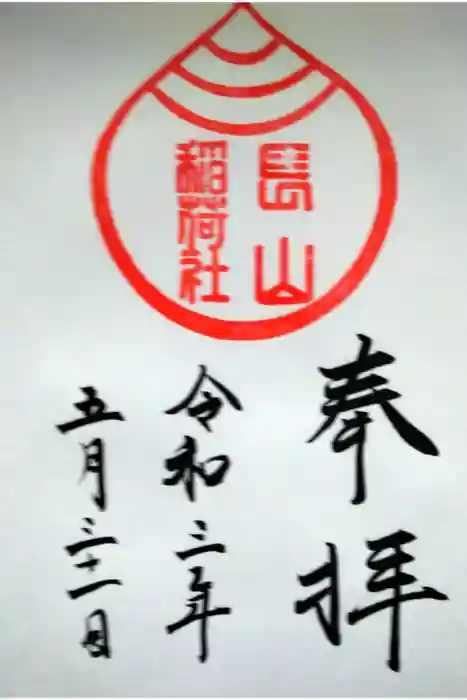 長山
稲荷社
奉拝
令和三年
五月三十一日